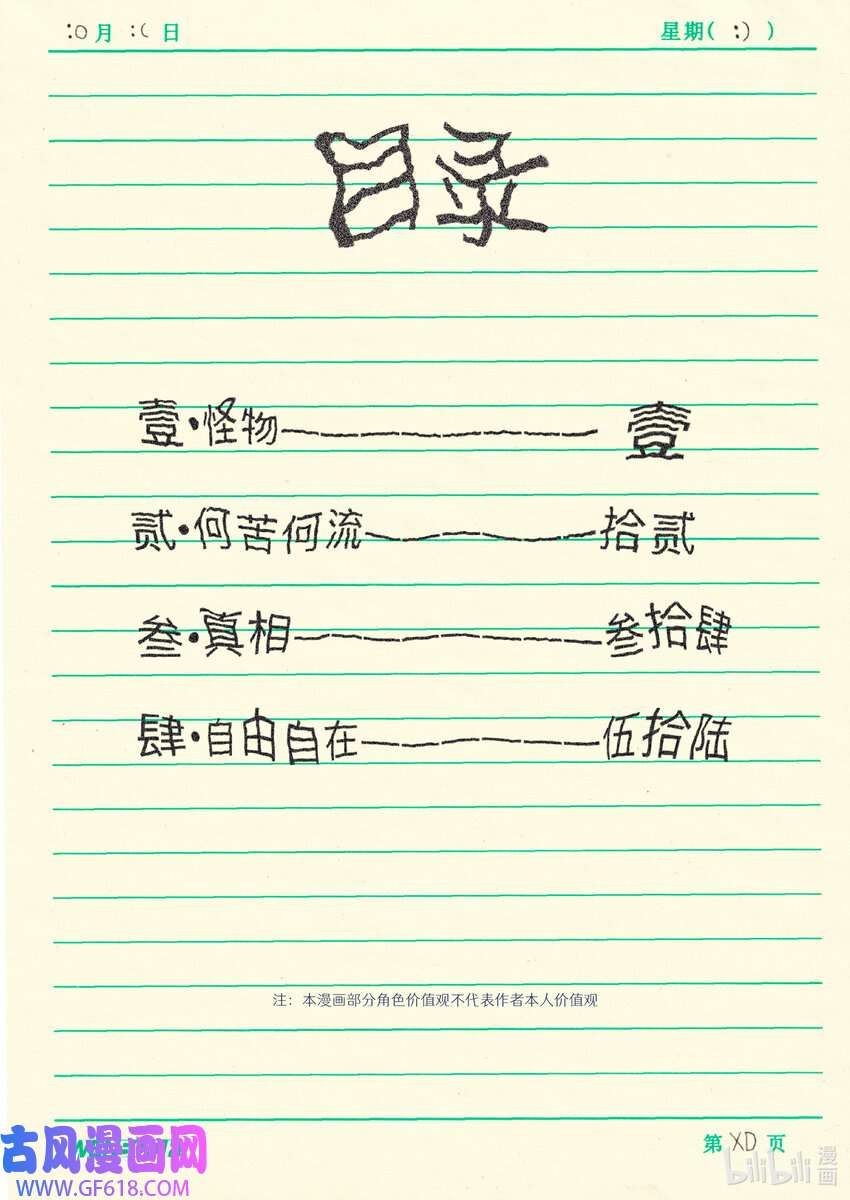 :O月 :( 日 星期( :) )
目录
壹·怪物——壹
贰·何苦何流——拾贰
叁·真相——叁拾肆
肆·自由自在——伍拾陆
注：本漫画部分角色价值观不代表作者本人价值观
第 XD 页
古风漫画网
WWW.GF618.COM
bilibili 漫画